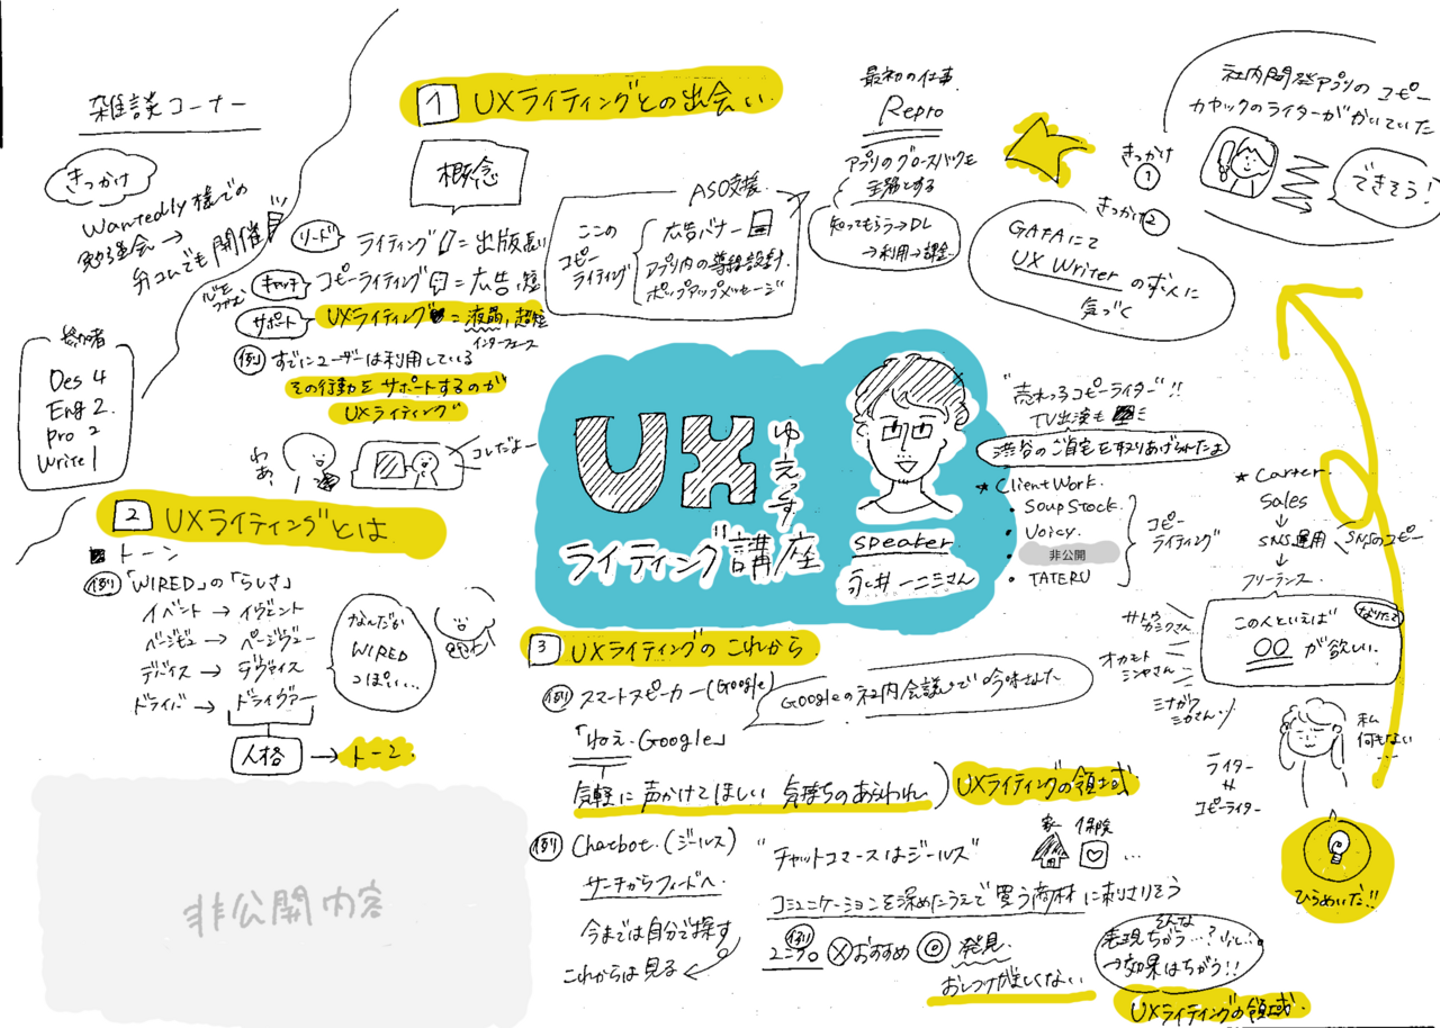 雑談コーナー
きっかけ
Wantedly様での
勉強会→
弁コムでも開催
参加者
Des 4
Eng 2.
Pro 2
Write 1
1 UXライティングとの出会い.
概念
リード
ライティング = 出版 長い
心をつかむ
キャッチ
コピーライティング = 広告, 短
サポート
UXライティング = 液晶, 超短
インターフェース
例) すでにユーザーは利用している
その行動をサポートするのが
UXライティング
わあ、
コレだよー
ASO支援.
ここの
コピー
ライティング
広告バナー
アプリ内の導線設計.
ポップアップメッセージ
最初の仕事.
Repro
アプリのグロースハックを
主務とする
知ってもらう→DL
→利用→課金.
きっかけ
①
社内開発アプリのコピー
カヤックのライターがかいていた
できそう!
きっかけ②
GAFAにて
UX Writer の求人に
気づく
UX
ゆえっす
ライティング講座
speaker
永井一二三さん
"売れっ子コピーライター"!!
TV出演も
渋谷のご自宅を取りあげられたよ
★ Client Work.
• Soup Stock.
• Voicy.
• 非公開
• TATERU
コピー
ライティング
★ Carter.
Sales
↓
SNS運用
SNSのコピー
↓
フリーランス.
この人といえば
○○ が欲しい.
なりたて
サトウ
カシワさん
オカモト
シンヤさん
ミナガワ
ミカさん
私
何もない
...
ライター
⇆
コピーライター
ひらめいた!!
2 UXライティングとは
トーン
例)「WIRED」の「らしさ」
イベント → イヴェント
ページビュー → ページヴュー
デバイス → デヴァイス
ドライバー → ドライヴァー
なんだか
WIRED
っぽい...
人格 → トーン.
非公開内容
3 UXライティングの これから.
例) スマートスピーカー (Google)
Googleの社内会議で吟味された
「ねえ. Google」
気軽に声かけてほしい 気持ちのあらわれ
UXライティングの領域
例) Chatbot. (ジールス)
サーチからフィードへ.
今までは自分で探す
これからは見る
"チャットコマースはジールス"
家 保険
...
コミュニケーションを深めたうえで買う商材に刺さりそう
例)
ユニクロ
×おすすめ ◎ 発見.
おしつけがましくない
そんな
表現ちがう...?
→効果はちがう!!
UXライティングの領域.